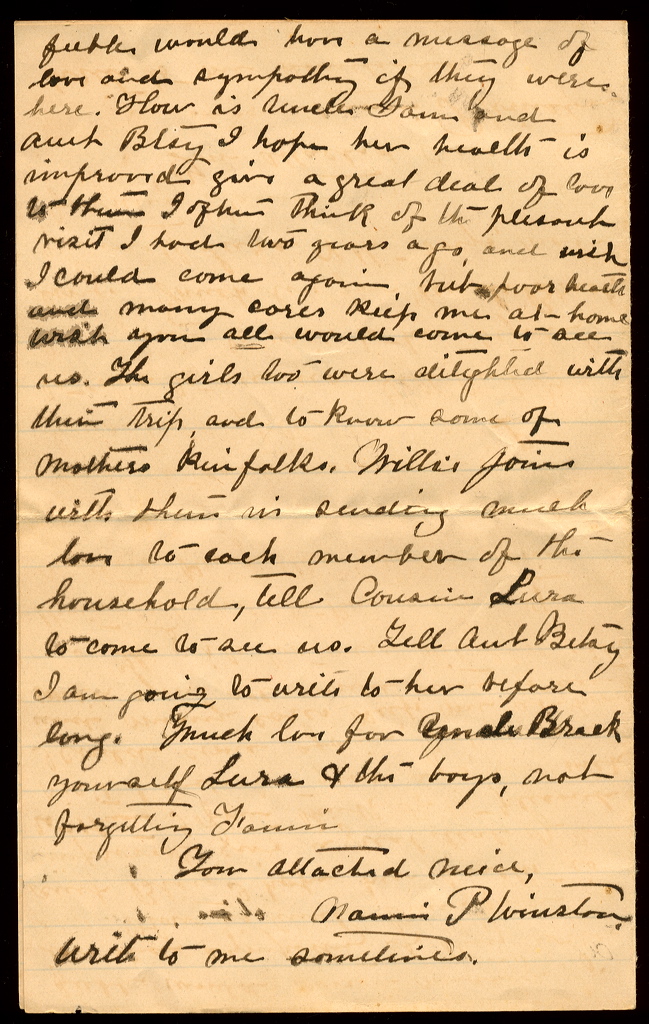 would have a message of
love and sympathy if they were
here. How is Uncle Sam and
aunt Betsy I hope her health is
improved give a great deal of love
to them I often think of the plesant
visit I had two years ago, and wish
I could come again, but poor health
and many cares keep me at home
wish you all would come to see
us. The girls too were delighted with
their trip, and to know some of
Mothers kinfolks. Willie joins
with them in sending much
love to each member of the
household, tell Cousin Lura
to come to see us. Tell Aut Betsy
I am going to write to her before
long. Much love for Uncle Brack
yourself Lura & the boys, not
forgetting Fannie
Your attached neice,
Nannie P Winston.
Write to me sometimes.